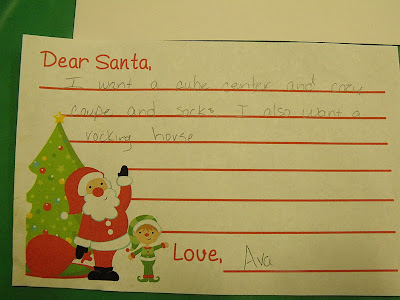 Dear Santa,
I want a cube center and cozy
coupe and socks I also want a
rocking horse
Love, Ava